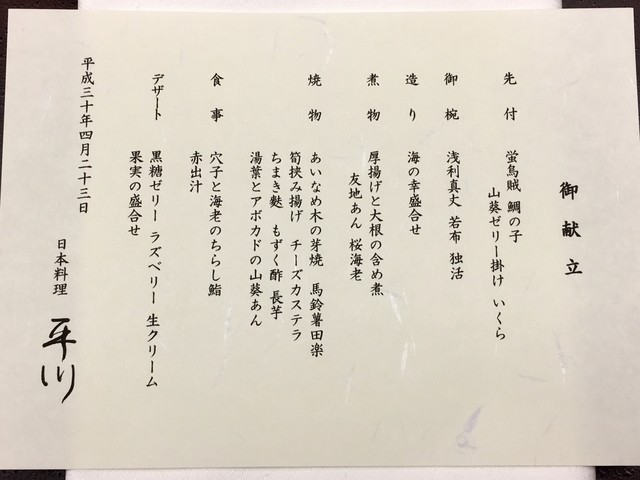 御献立
先付 蛍烏賊 鯛の子
山葵ゼリー掛け いくら
御椀 浅利真丈 若布 独活
造り 海の幸盛合せ
煮物 厚揚げと大根の含め煮
友地あん 桜海老
焼物 あいなめ木の芽焼 馬鈴薯田楽
筍挟み揚げ チーズカステラ
ちまき麩 もずく酢 長芋
湯葉とアボカドの山葵あん
食事 穴子と海老のちらし鮨
赤出汁
デザート 黒糖ゼリー ラズベリー 生クリーム
果実の盛合せ
平成三十年四月二十三日
日本料理 平川